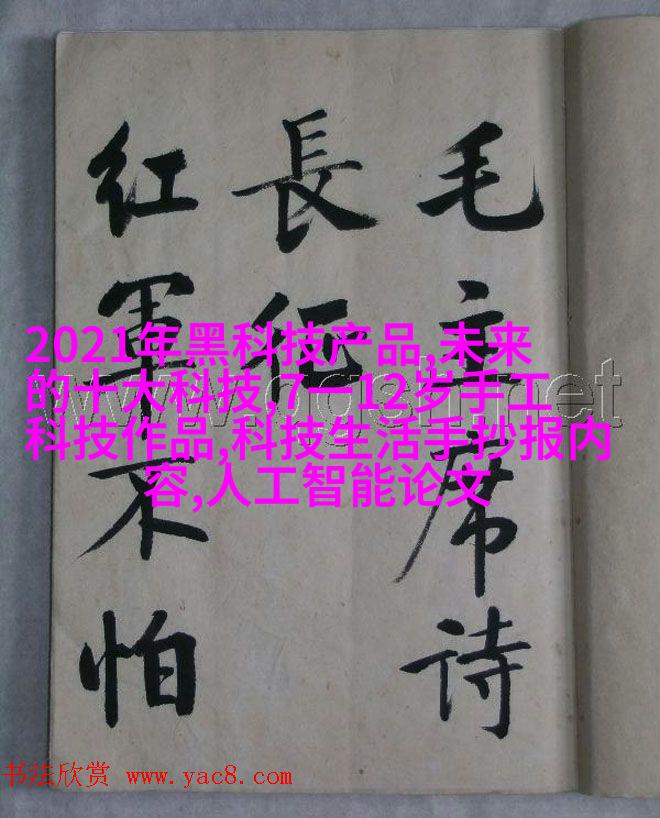 毛主席诗
長征
红軍不怕
2021年黑科技产品,未来
的十大科技,7一12岁手工
科技作品,科技生活手抄报内
容,人工智能论文
书法欣赏 www.yac8.com